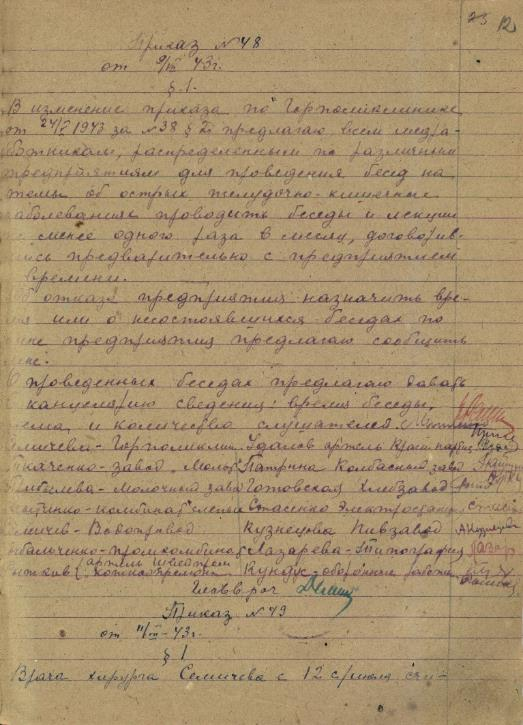 23 12
Приказ № 48
от 9/VII 43 г.
§ 1.
В изменение приказа по Горполиклинике
от 24/V 1943 за № 38 § 2 предлагаю всем медра-
ботникам, распределенным по различным
предприятиям для проведения бесед на
темы об острых желудочно-кишечных
заболеваниях проводить беседы и лекции
не менее одного раза в месяц, договорив-
шись предварительно с предприятием
о времени.
Об отказе предприятия назначить вре-
мя или о несостоявшихся беседах по
вине предприятия предлагаю сообщить
мне.
О проведенных беседах предлагаю давать
в канцелярию сведения: время беседы,
тема и количество слушателей.
Семичева - Горполиклин Удалов артель
Ткаченко - завод Молот Патрина Колбасный завод
Молочный завод Готовская Хлебзавод
комбинат Стасенко Электростанц
Семичев - Водопровод Кузнецова Пивзавод
промкомбинат Лазарева - Типография
артель Швейпром Кундус - оборонные работы
Главврач
Приказ № 49
от 11/VII - 43 г.
§ 1
Врача хирурга Семичева с 12 с/июля счи-